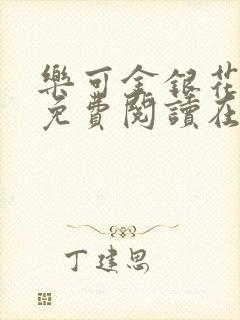 樂可金銀花
免費閱讀在
丁建思